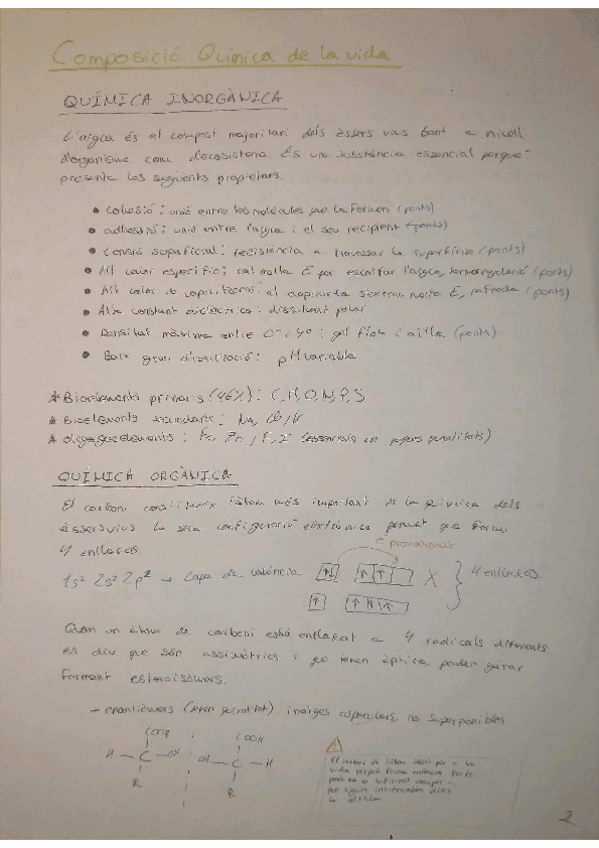 Composició Química de la vida
QUÍMICA INORGÀNICA
L'aigua és el compost majoritari dels éssers vius tant a nivell
d'organisme com d'ecosistema. És una substància essencial perquè
presenta les següents propietats.
• Cohesió: unió entre les molècules que la formen (ponts)
• adhesió: unió entre l'aigua i el seu recipient (ponts)
• tensió superficial: resistència a travessar la superfície (ponts)
• Alt calor específic: cal molta E per escalfar l'aigua, termoregulació (ponts)
• Alt calor de vaporització: al evaporarla s'extreu molta E, refreda (ponts)
• Alta constant dielèctrica: dissolvent polar
• Densitat màxima entre 0º i 4º: gel flota i aïlla (ponts)
• Baix grau d'ionització: pH variable
* Bioelements primaris (96%): C, H, O, N, P, S
* Bioelements secundaris: Na,
* oligoelements: Fe, Zn, F, I (essencials en petites quantitats)
QUÍMICA ORGÀNICA
El carboni constitueix l'àtom més important de la química dels
éssers vius. La seva configuració electrònica permet que formi
4 enllaços.
e⁻ promocionat
1s² 2s² 2p² → Capa de valència X 4 enllaços
Quan un àtom de carboni està enllaçat a 4 radicals diferents
es diu que són assimètrics i que tenen òptica, poden girar
formant estereoisòmers.
- enantiòmers (tenen quiralitat): imatges especulars no superposibles
COOH COOH
H - C - OH OH - C - H
R R
El carboni és l'àtom ideal per a la
vida perquè forma enllaços forts
però no lo suficient com per a
que siguin dins
la cèl·lula
2